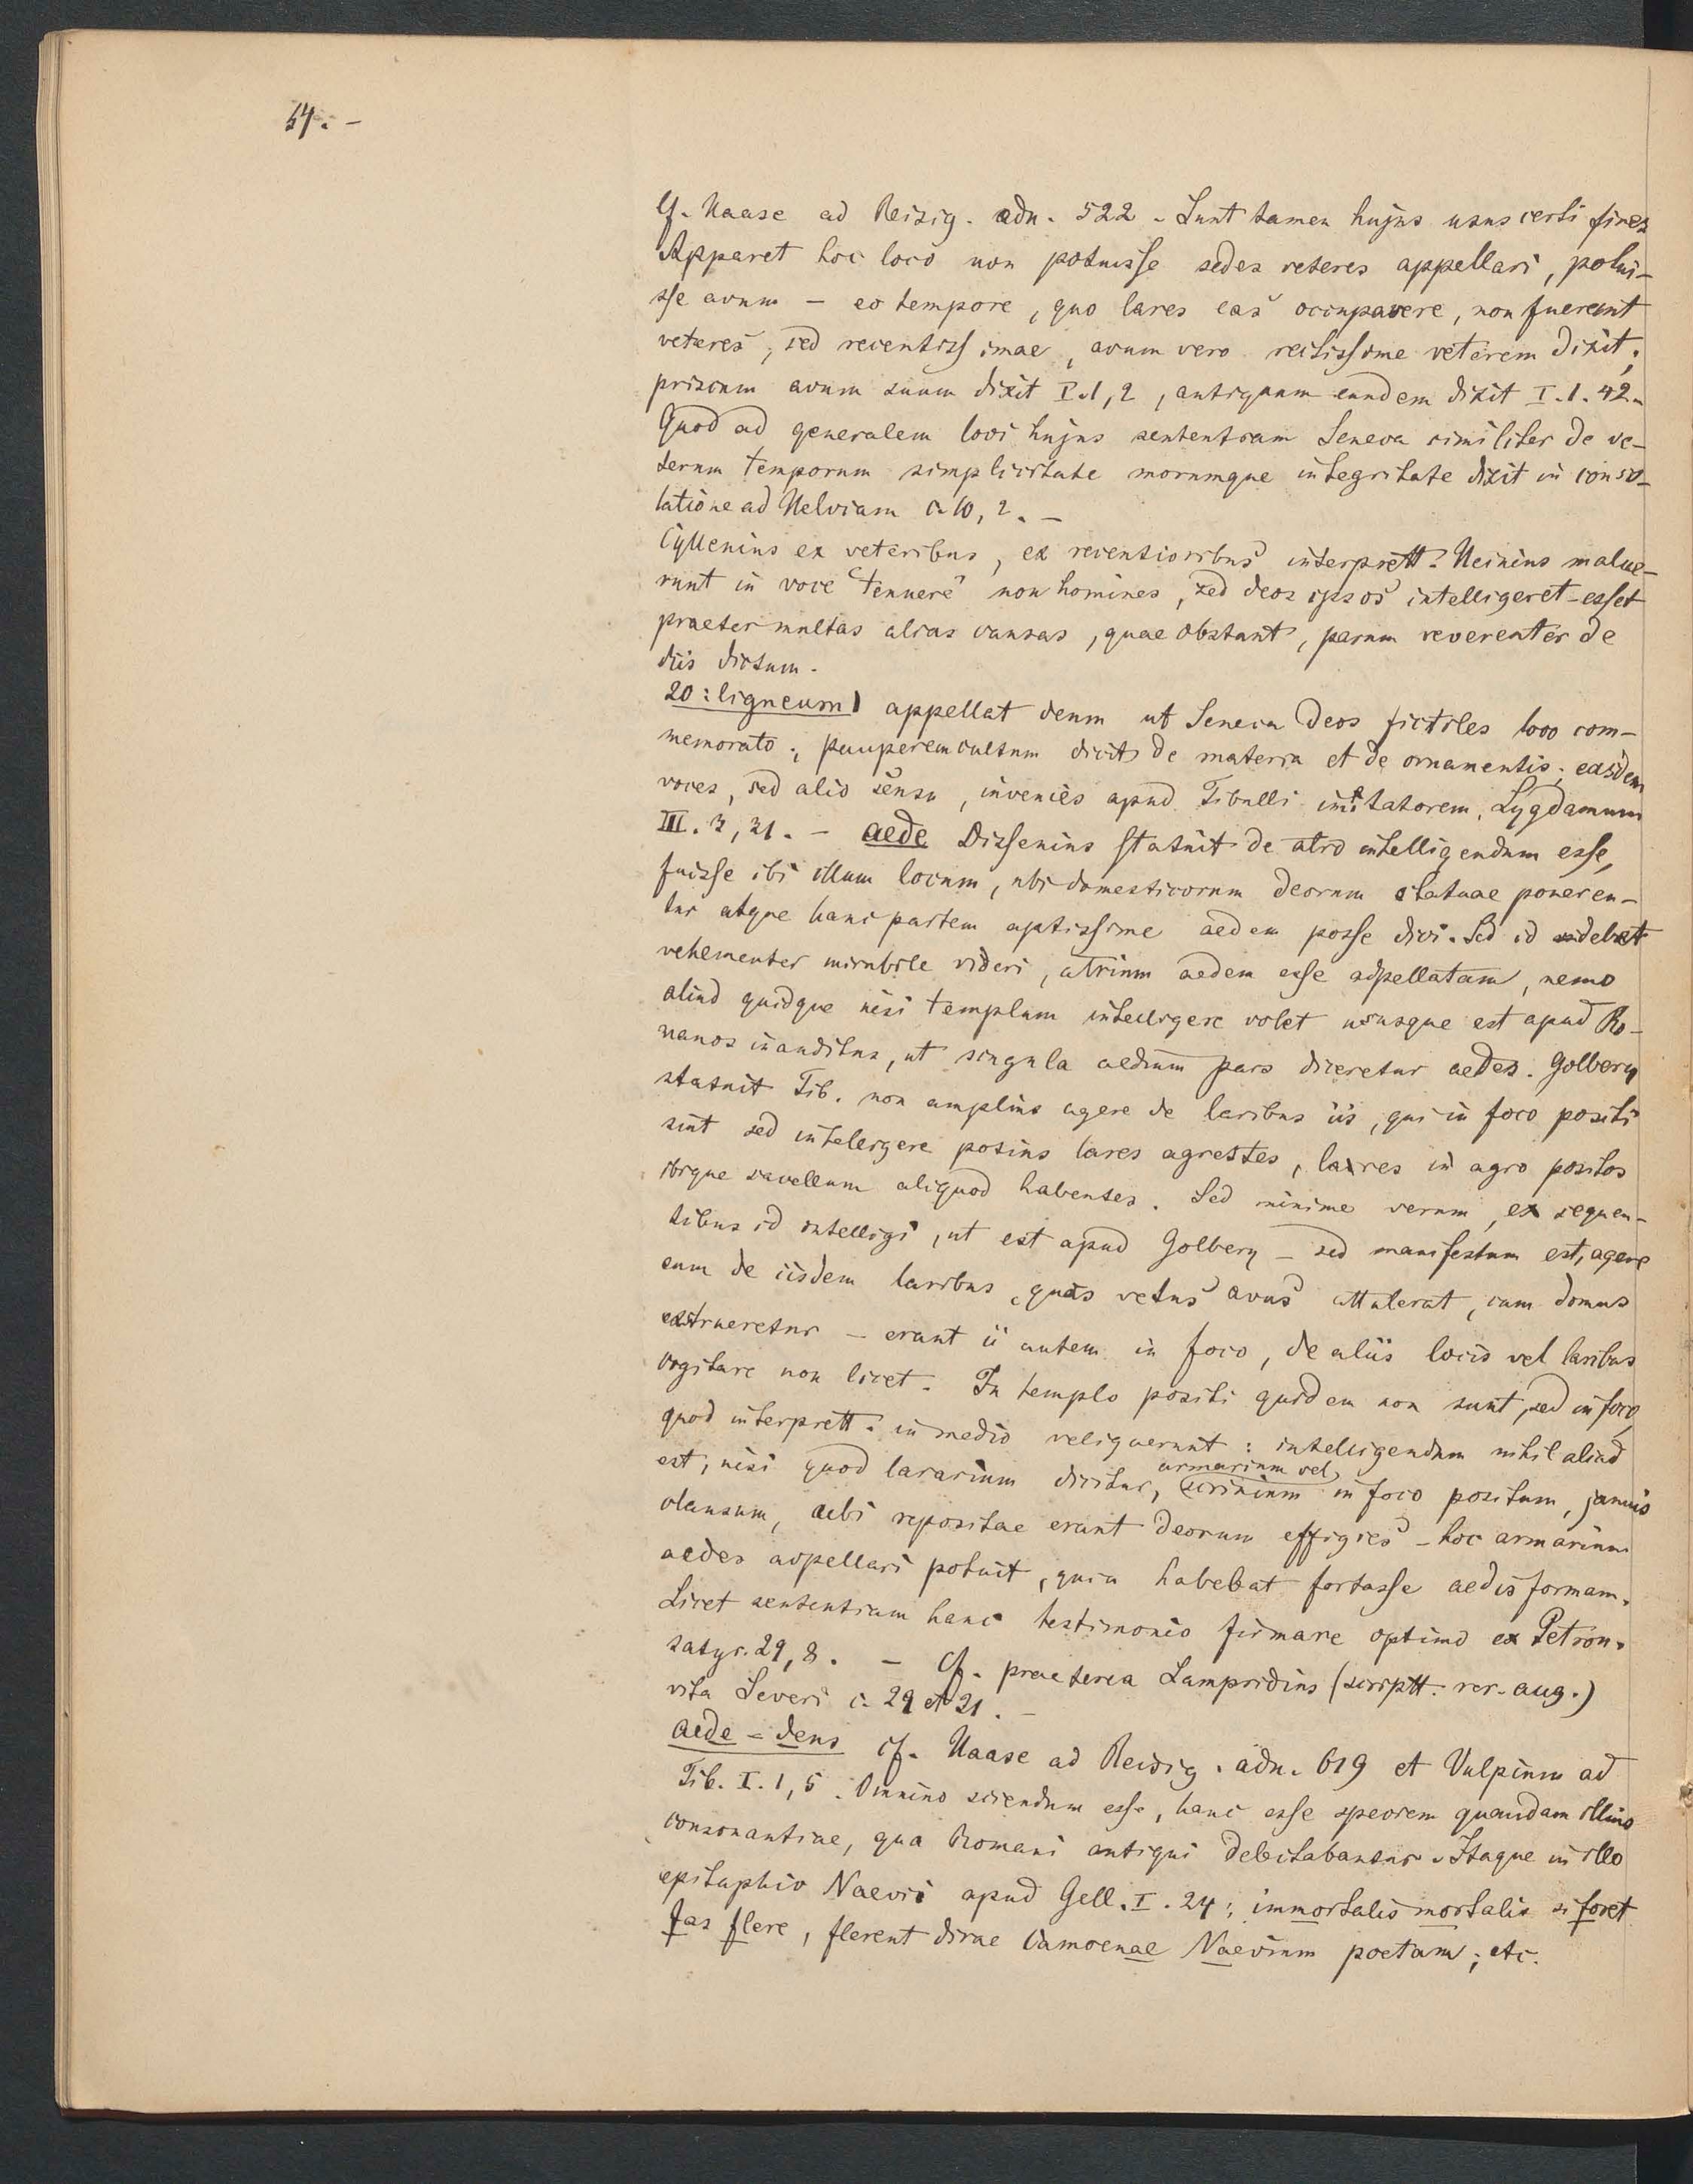 54. -
Cf. Haase ad Reisig. adn. 522 - Sunt tamen hujus usus certi fines
Apparet hoc loco non potuisse sedes veteres appellari, potui-
sse avum - eo tempore, quo lares eas occupavere, non fuerant
veteres, sed recentissimae, avum vero rectissime veterem dixit;
priscum avum suum dixit II.1,2, antiquum eundem dixit I.1.42.
Quod ad generalem loci hujus sententiam Seneca similiter de ve-
terum temporum simplicitate morumque integritate dixit in conso-
latione ad Helviam c. 10, 2. -
Cyllenius ex veteribus, ex recentioribus interprett. Heinius malue-
runt in voce "tenuere" non homines, sed deos ipsos intelligeret - esset
praeter multas alias causas, quae obstant, parum reverenter de
diis dictum.
20: ligneum) appellat deum ut Seneca Deos fictiles loco com-
memorato; pauperem cultum dicit de materia et de ornamentis; easdem
voces, sed alio sensu, invenies apud Tibulli imitatorem, Lygdamum
III. 3, 31. - aede Dissenius statuit de atro intelligendum esse,
fuisse ibi illum locum, ubi domesticorum deorum statuae poneren-
tur atque hanc partem aptissime aedem posse dici. Sed id debet
vehementer mirabile videri, atrium aedem esse adpellatam, nemo
aliud quidque nisi templum intelligere volet ususque est apud Ro-
manos inauditus, ut singula aedium pars diceretur aedes. Golbery
statuit Tib. non amplius agere de laribus iis, qui in foco positi
sint sed intelegere potius lares agrestes, lares in agro positos
ibique sacellum aliquod habentes. Sed minime verum, ex sequen-
tibus id intelligi, ut est apud Golbery - sed manifestum est, agere
eum de iisdem laribus, quos vetus avus attulerat, cum domus
exstrueretur - erant ii autem in foco, de aliis locis vel laribus
cogitare non licet. In templo positi quidem non sunt, sed in foco,
quod interprett. in medio reliquerunt: intelligendum nihil aliud
est, nisi quod lararium dicitur, armarium vel scrinium in foco positum, januis
clausum, ubi repositae erant deorum effigies - hoc armarium
aedes adpellari potuit, quia habebat fortasse aedis formam.
Licet sententiam hanc testimonio firmare optimo ex Petron.
satyr. 29, 8. - Cf. praeterea Lampridius (scriptt. rer. aug.)
vita Severi c. 29 et 31. -
aede - deus cf. Haase ad Reisig. adn. 619 et Vulpium ad
Tib. I. 1, 5. Omnino sciendum esse, hanc esse speciem quandam illius
consonantiae, qua Romani antiqui delectabantur. Itaque in illo
epitaphio Naevii apud Gell. I. 24: immortalis mortalis si foret
fas flere, flerent divae Camoenae Naevium poetam; etc.